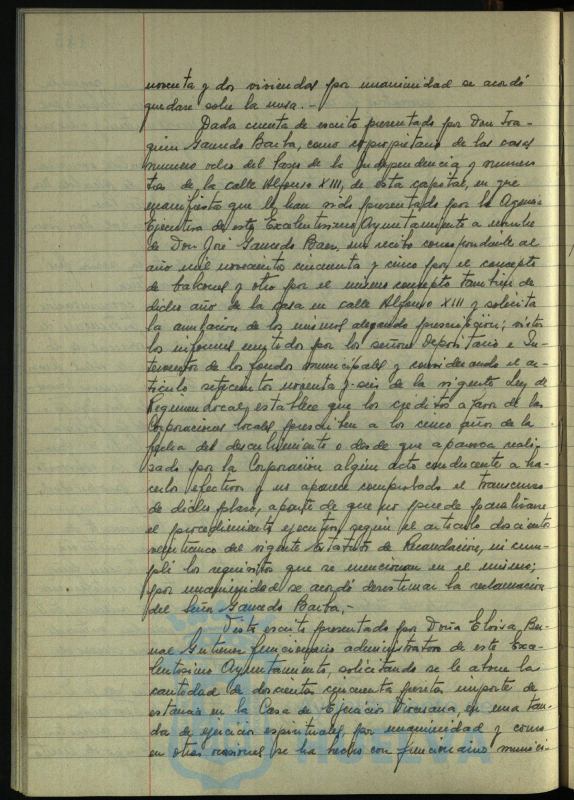 noventa y dos viviendas por unanimidad se acordó
quedase sobre la mesa.-
Dada cuenta de escrito presentado por Don Joa-
quin Barba, como propietario de las casas
numero ocho del Paseo de la Independencia y numero
tres de la calle Alfonso XIII, de esta capital, en que
manifiesta que le han sido presentado por la Agencia
Ejecutiva de este Excelentisimo Ayuntamiento a nombre
de Don José un recibo correspondiente al
año mil novecientos cincuenta y cinco por el concepto
de balcones y otro por el mismo concepto tambien de
dicho año de la casa en calle Alfonso XIII y solicita
la anulacion de los mismos alegando prescripción; vistos
los informes emitidos por los señores Depositario e In-
terventor de los fondos municipales y considerando el ar-
ticulo setecientos noventa y seis de la vigente Ley de
Regimen Local, establece que los creditos a favor de las
Corporaciones locales prescriben a los cinco años de la
fecha del descubrimiento o desde que aparezca reali-
zado por la Corporación algún acto conducente a ha-
cerlos efectivos y no aparece comprobado el transcurso
de dicho plazo, aparte de que no puede paralizarse
el procedimiento ejecutivo segun el articulo doscientos
veinticinco del vigente Estatuto de Recaudación, ni cum-
plió los requisitos que se mencionan en el mismo;
por unanimidad se acordó desestimar la reclamacion
del Señor Barba.-
Visto escrito presentado por Doña Eloisa Ber-
nal Gutierrez funcionario administrativo de este Exce-
lentisimo Ayuntamiento, solicitando se le abone la
cantidad de doscientas cincuenta pesetas importe de
estancia en la Casa de Ejercicios Diocesana, en una tan-
da de ejercicios espirituales, por unanimidad y como
en otras ocasiones se ha hecho con funcionarios munici-